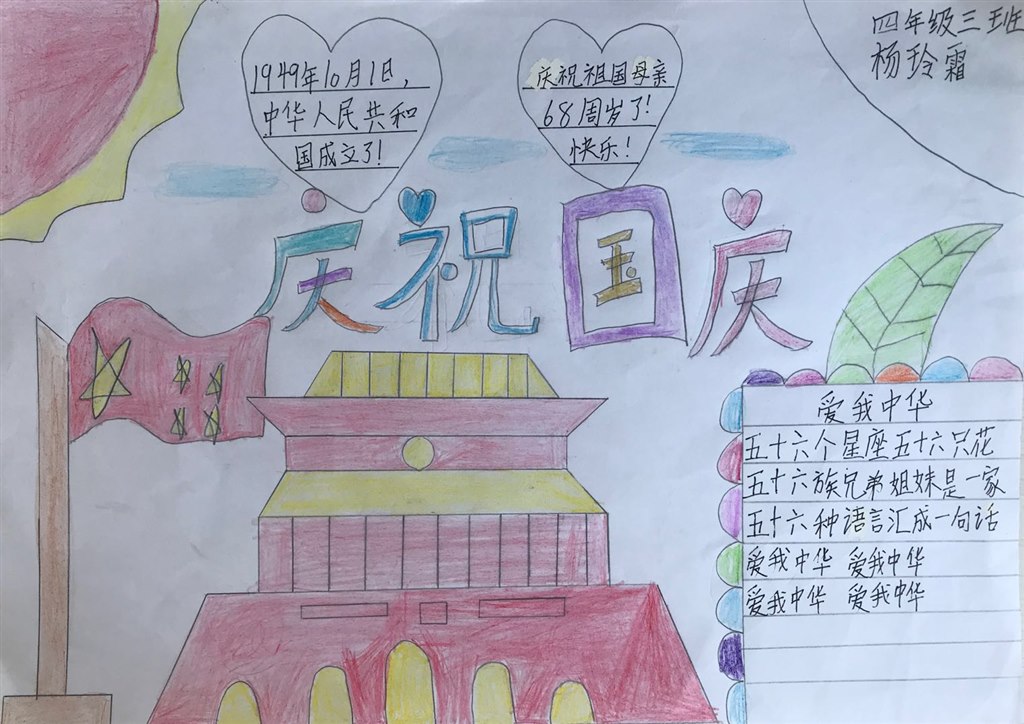 四年级三班
杨玲霜
1949年10月1日，
中华人民共和
国成立了！
庆祝祖国母亲
68周岁了！
快乐！
庆祝国庆
爱我中华
五十六个星座五十六只花
五十六族兄弟姐妹是一家
五十六种语言汇成一句话
爱我中华 爱我中华
爱我中华 爱我中华